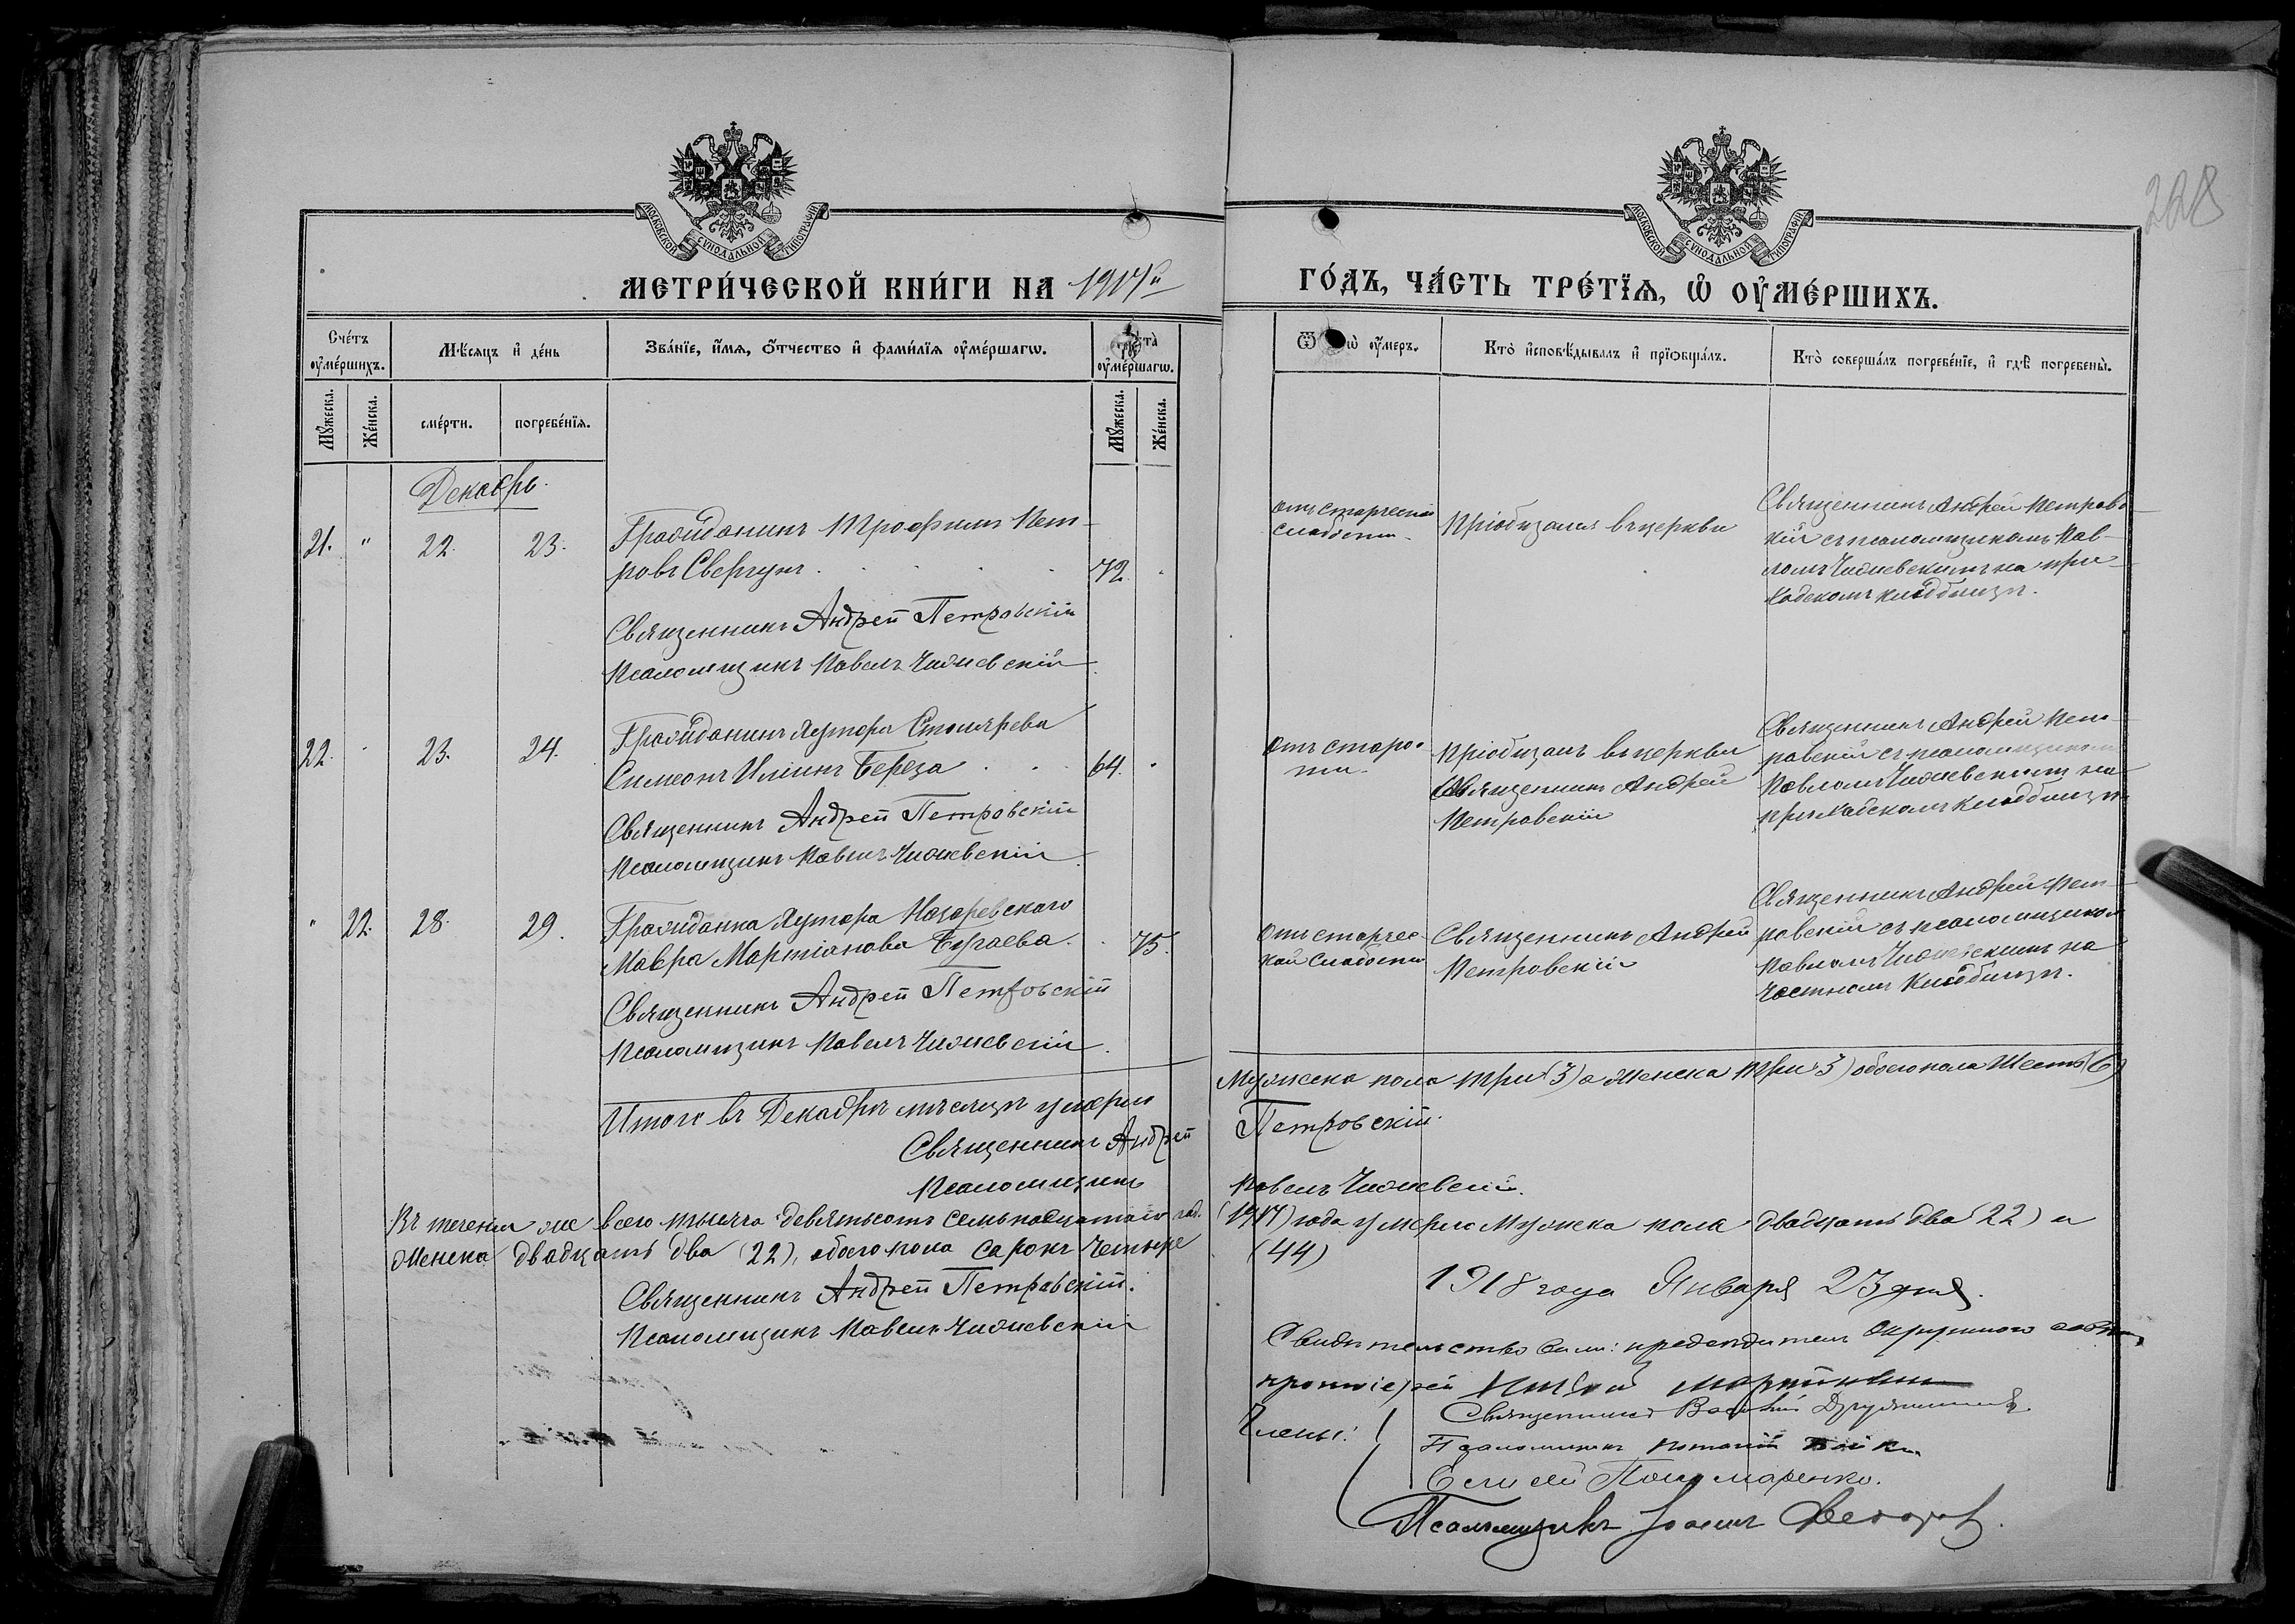 208
МОСКОВСКОЙ СУНОДАЛЬНОЙ ТИПОГРАФІИ
МОСКОВСКОЙ СУНОДАЛЬНОЙ ТИПОГРАФІИ
МЕТРИ́ЧЕСКОЙ КНИ́ГИ НА 1917й
ГО́ДЪ, ЧА́СТЬ ТРЕ́ТЇѦ, Ѡ҆ ОУ҆МЕ́РШИХЪ.
Сче́тъ оу҆ме́ршихъ.
Мѣ́сяцъ и҆ де́нь
Зва́нїе, и҆́мѧ, ѻ҆́тчество и҆ фами́лїѧ оу҆ме́ршагѡ.
Лѣ́та оу҆ме́ршагѡ.
Ѿ чегѡ̀ оу҆́меръ.
Кто̀ и҆сповѣ́дывалъ и҆ прїѡбща́лъ.
Кто̀ соверша́лъ погребе́нїе, и҆ гдѣ̀ погребены̀.
Мꙋ́жеска.
Же́нска.
сме́рти.
погребе́нїѧ.
Мꙋ́жеска.
Же́нска.
Декабрь.
21. " 22. 23.
Гражданинъ Трофимъ Пет-
ровъ Свергунъ
72
Священникъ Андрей Петровскій
Псаломщикъ Павелъ Чижевскій
отъ старческой
слабости.
Пріобщался въ церкви
Священникъ Андрей Петровс-
кій съ псаломщикомъ Пав-
ломъ Чижевскимъ на при-
ходскомъ кладбищѣ.
22. 23. 24.
Гражданинъ хутора Столярева
Симеонъ Иліинъ Береза
64.
Священникъ Андрей Петровскій
Псаломщикъ Павелъ Чижевскій
Отъ старос-
ти.
Пріобщалъ въ церкви
Священникъ Андрей
Петровскій
Священникъ Андрей Пет-
ровскій съ псаломщикомъ
Павломъ Чижевскимъ на
приходскомъ кладбищѣ
" 22. 28. 29.
Гражданка хутора Назаревскаго
Мавра Мартіанова Бугаева.
75.
Священникъ Андрей Петровскій
Псаломщикъ Павелъ Чижевскій.
Отъ старчес-
кой слабости
Священникъ Андрей
Петровскій
Священникъ Андрей Пет-
ровскій съ псаломщикомъ
Павломъ Чижевскимъ на
частномъ кладбищѣ.
Итого въ Декабрѣ мѣсяцѣ умерло
Мужеска пола три (3) а женска три (3) обоего пола шесть (6)
Священникъ Андрей
Петровскій.
Псаломщикъ
Павелъ Чижевскій.
Въ теченіи же всего тысяча девятьсотъ семьнадцатаго год.
(1917) года умерло мужеска пола двадцать два (22) и
женска двадцать два (22), обоего пола сорокъ четыре
(44)
Священникъ Андрей Петровскій.
Псаломщикъ Павелъ Чижевскій
1918 года Января 23 дня.
Свидѣтельствовали: предсѣдатель Окружного
протоіерей
Члены:
Священникъ Василій
Псаломщикъ
Елисей Пономаренко.
Псаломщикъ Іоаннъ Федоров.